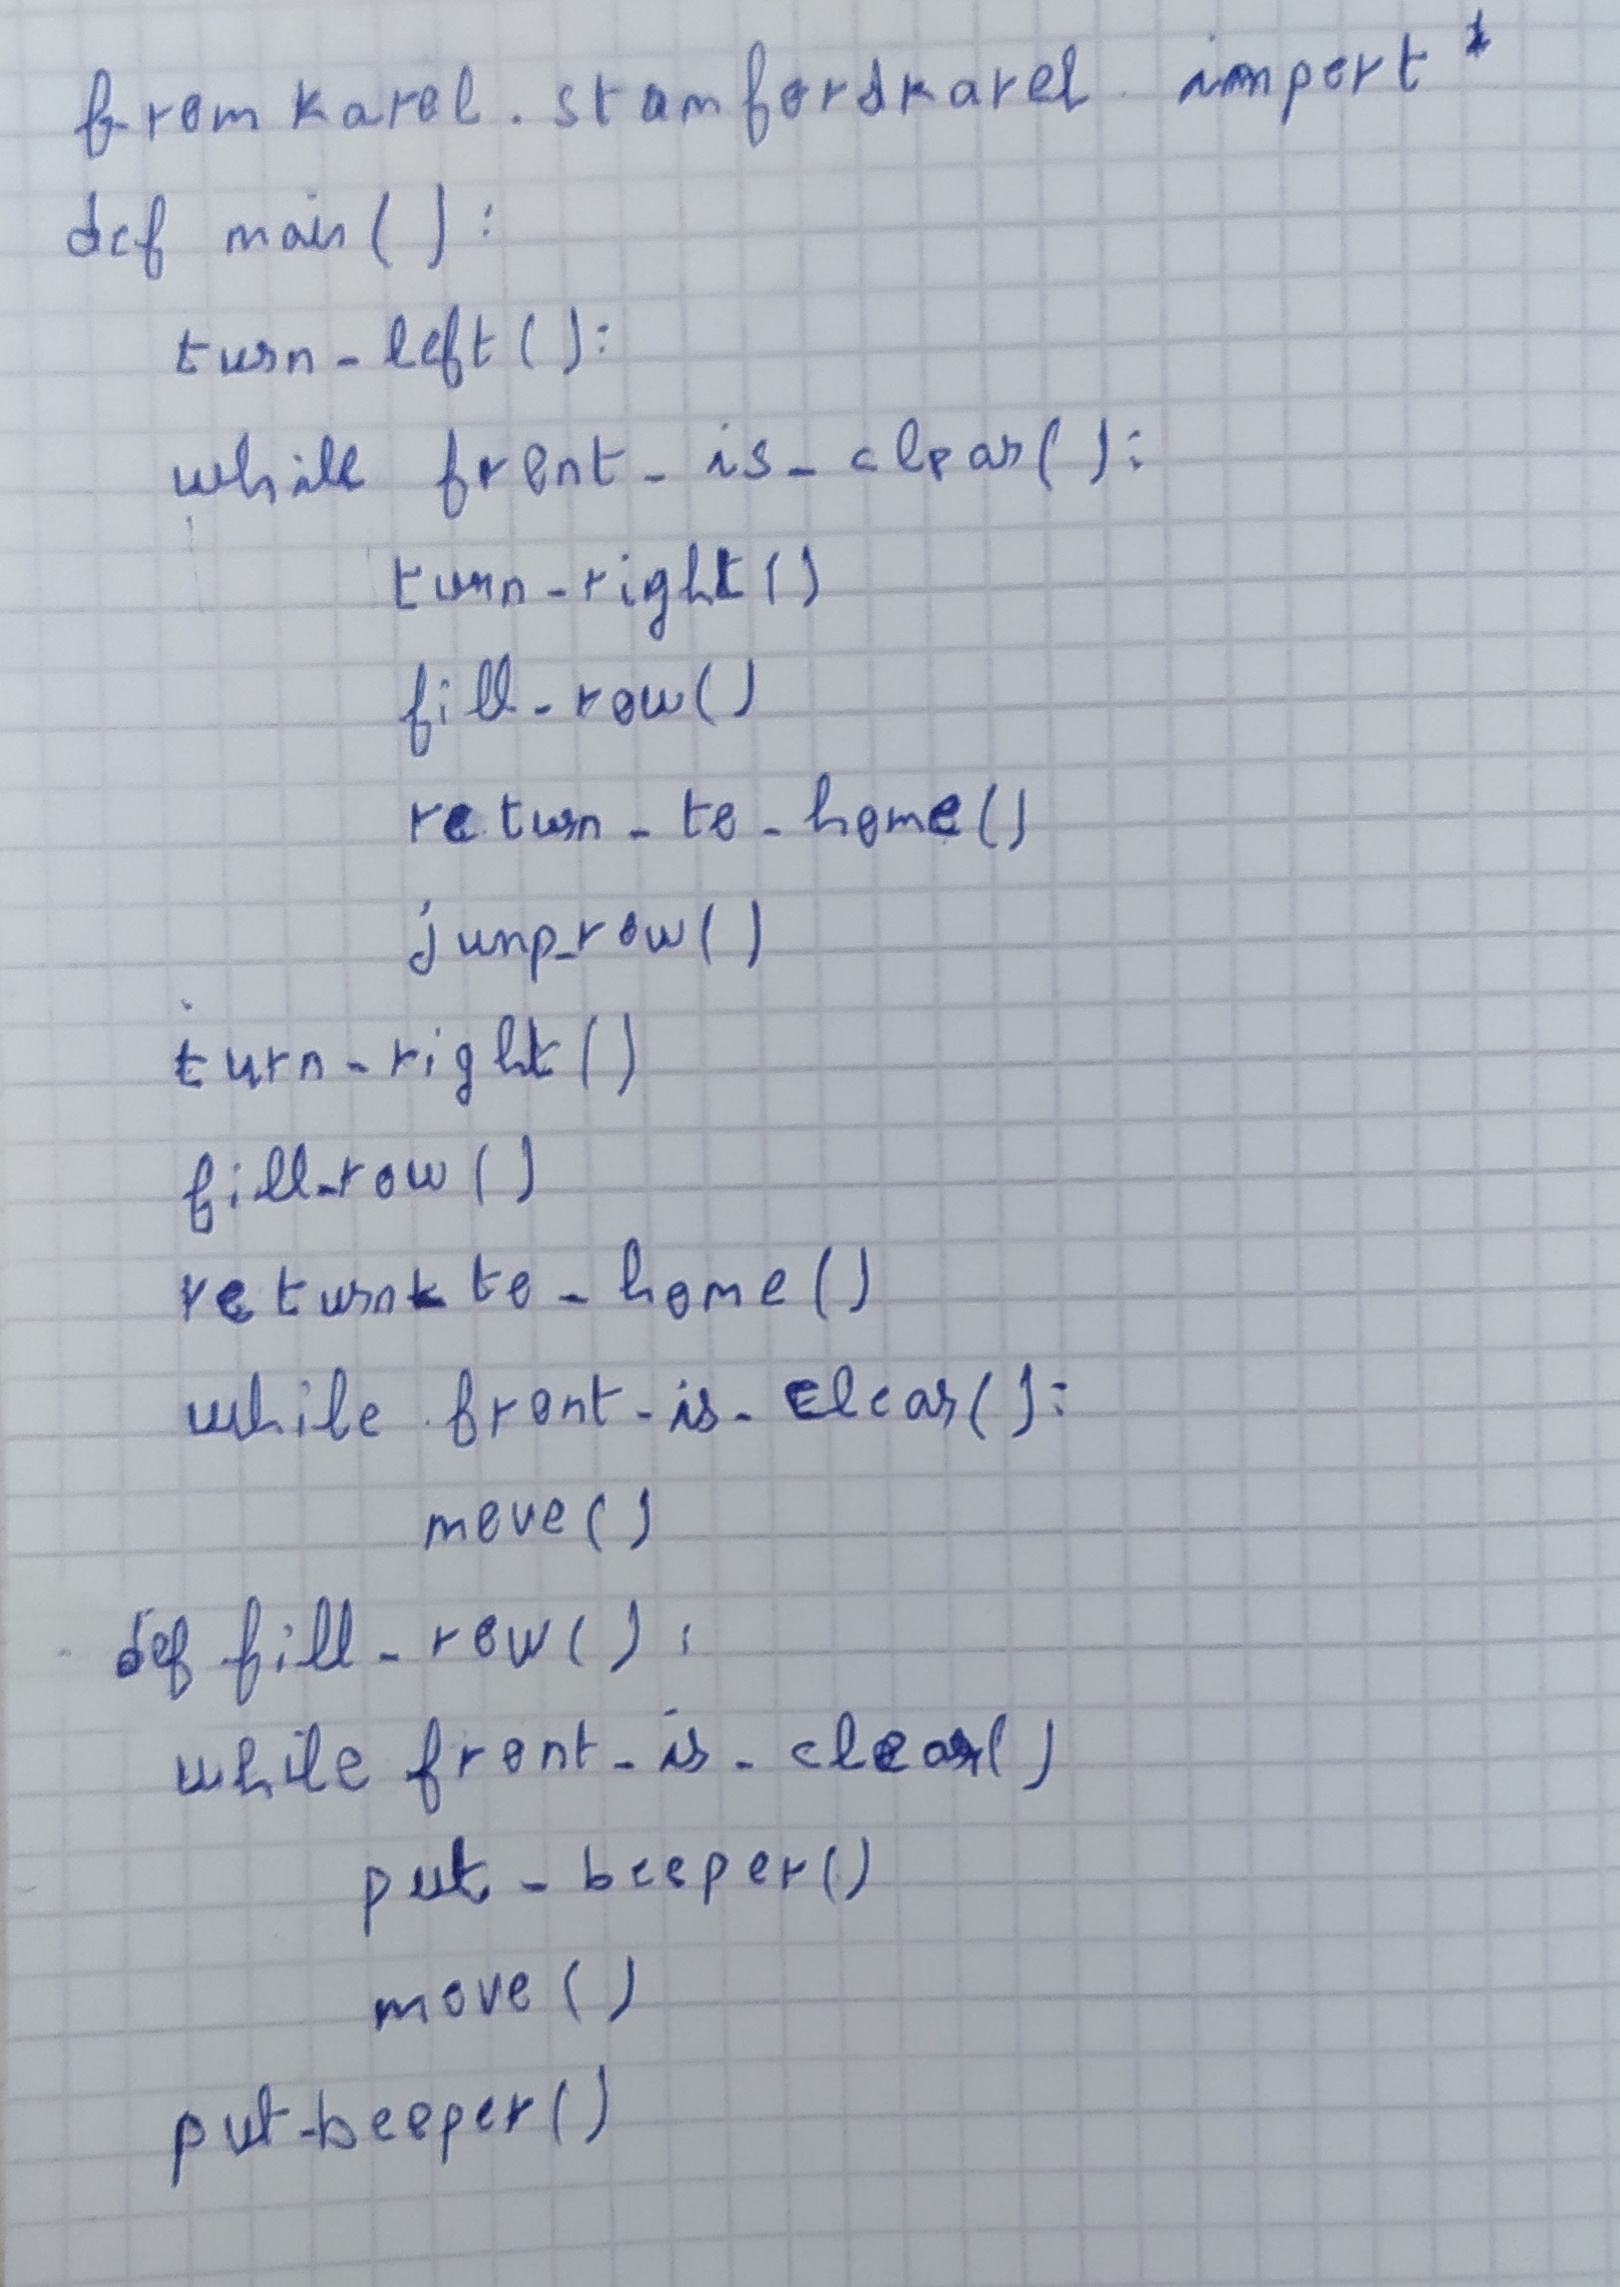 from karel.stanfordkarel import *
def main():
turn_left():
while front_is_clear():
turn_right()
fill_row()
return_to_home()
jump_row()
turn_right()
fill_row()
return_to_home()
while front_is_clear():
move()
def fill_row():
while front_is_clear()
put_beeper()
move()
put_beeper()